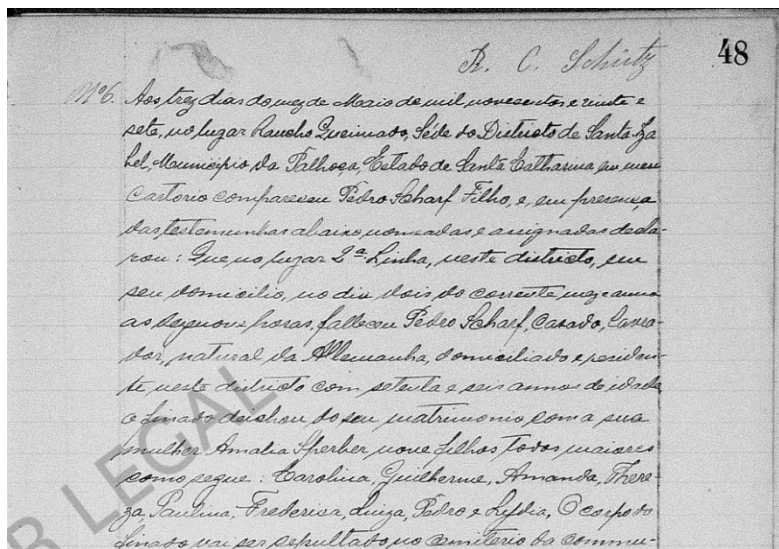 R. C. Schütz
48
Nº 6. Aos trez dias do mez de Maio de mil novecentos e vinte e
sete, no lugar Rancho Queimado, Séde do Districto de Santa Iza
bel, Municipio da Palhoça, Estado de Santa Catharina, em meu
Cartorio compareceu Pedro Scharf Filho, e, em presença
das testemunhas abaixo nomeadas e assignadas decla-
rou: Que no lugar 2ª Linha, neste districto, em
seu domicilio, no dia dois do corrente mez e anno
as dezenove horas, falleceu Pedro Scharf, Casado, Lavra-
dor, natural da Allemanha, domiciliado e residen-
te neste districto com setenta e seis annos de idade
o finado deixou do seu matrimonio com a sua
mulher Amalia Sperber nove filhos todos maiores
como segue: Carolina, Guilherme, Amanda, There-
za, Paulina, Frederica, Luiza, Pedro e Lydia, O corpo do
finado vai ser sepultado no cemiterio da commu-
R LEGAL